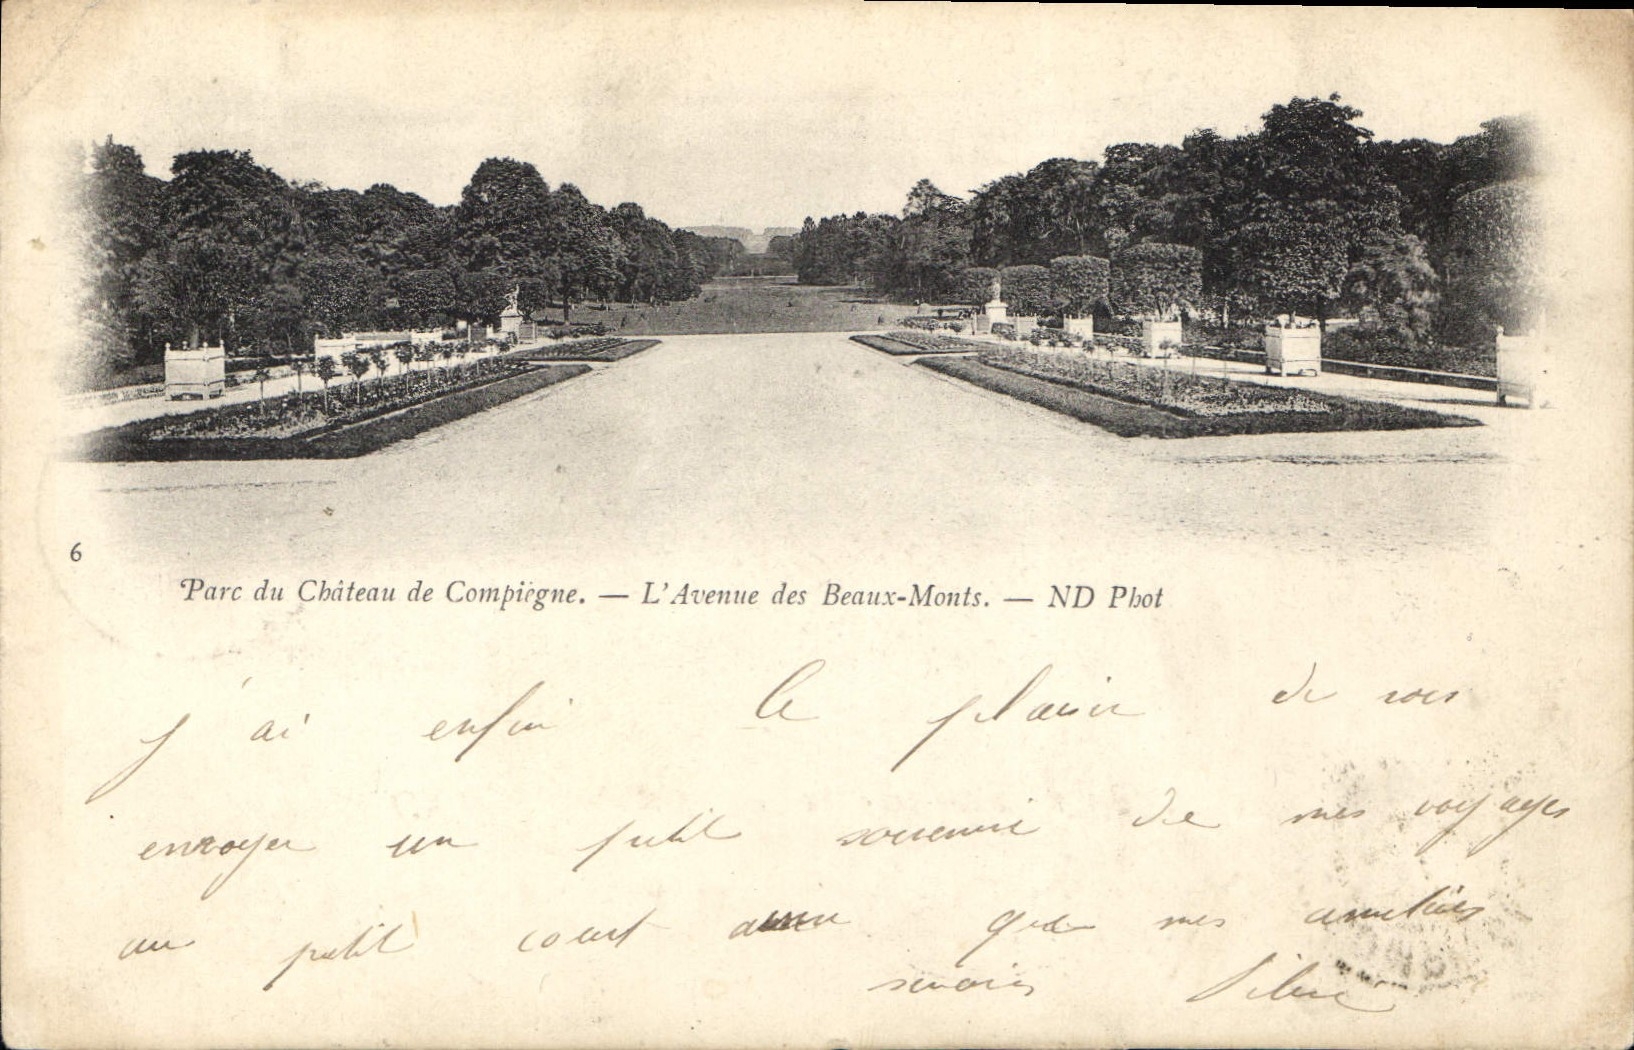 6
Parc du Château de Compiègne. — L'Avenue des Beaux-Monts. — ND Phot
j'ai enfin le plaisir de vous
envoyer un petit souvenir de mes voyages
un petit que mes amitiés